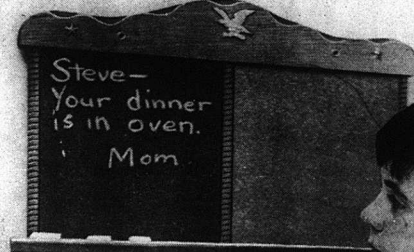 Steve—
Your dinner
is in oven.
Mom